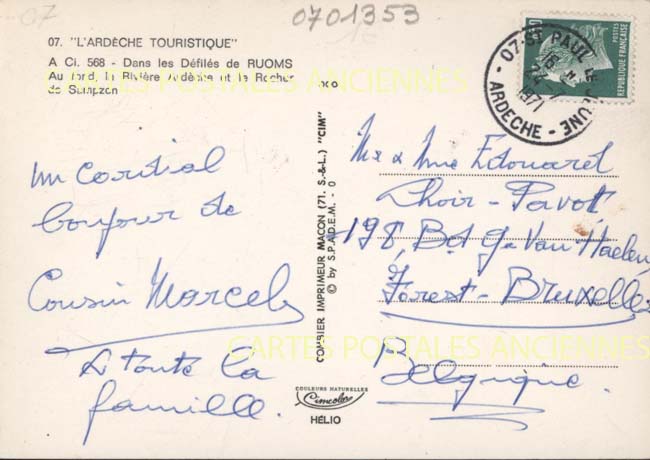 07
0701353
07. "L'ARDÈCHE TOURISTIQUE"
A Ci. 568 - Dans les Défilés de RUOMS
Au fond, la Rivière Ardèche et le Rocher
de Sampzon
CARTES POSTALES ANCIENNES
un cordial
bonjour de
Cousin Marcel
à toute la
famille.
COMBIER IMPRIMEUR MACON (71. S.-&-L.) "CIM"
© by S.P.A.D.E.M. - 0
COULEURS NATURELLES
Cimcolor
HÉLIO
07-ST PAUL LE JEUNE
1971
ARDECHE
REPUBLIQUE FRANÇAISE
Mr & Mme Edouard
Choir-Pavot
198, Bd G. Van Haelen,
Forest-Bruxelles
Belgique.
CARTES POSTALES ANCIENNES